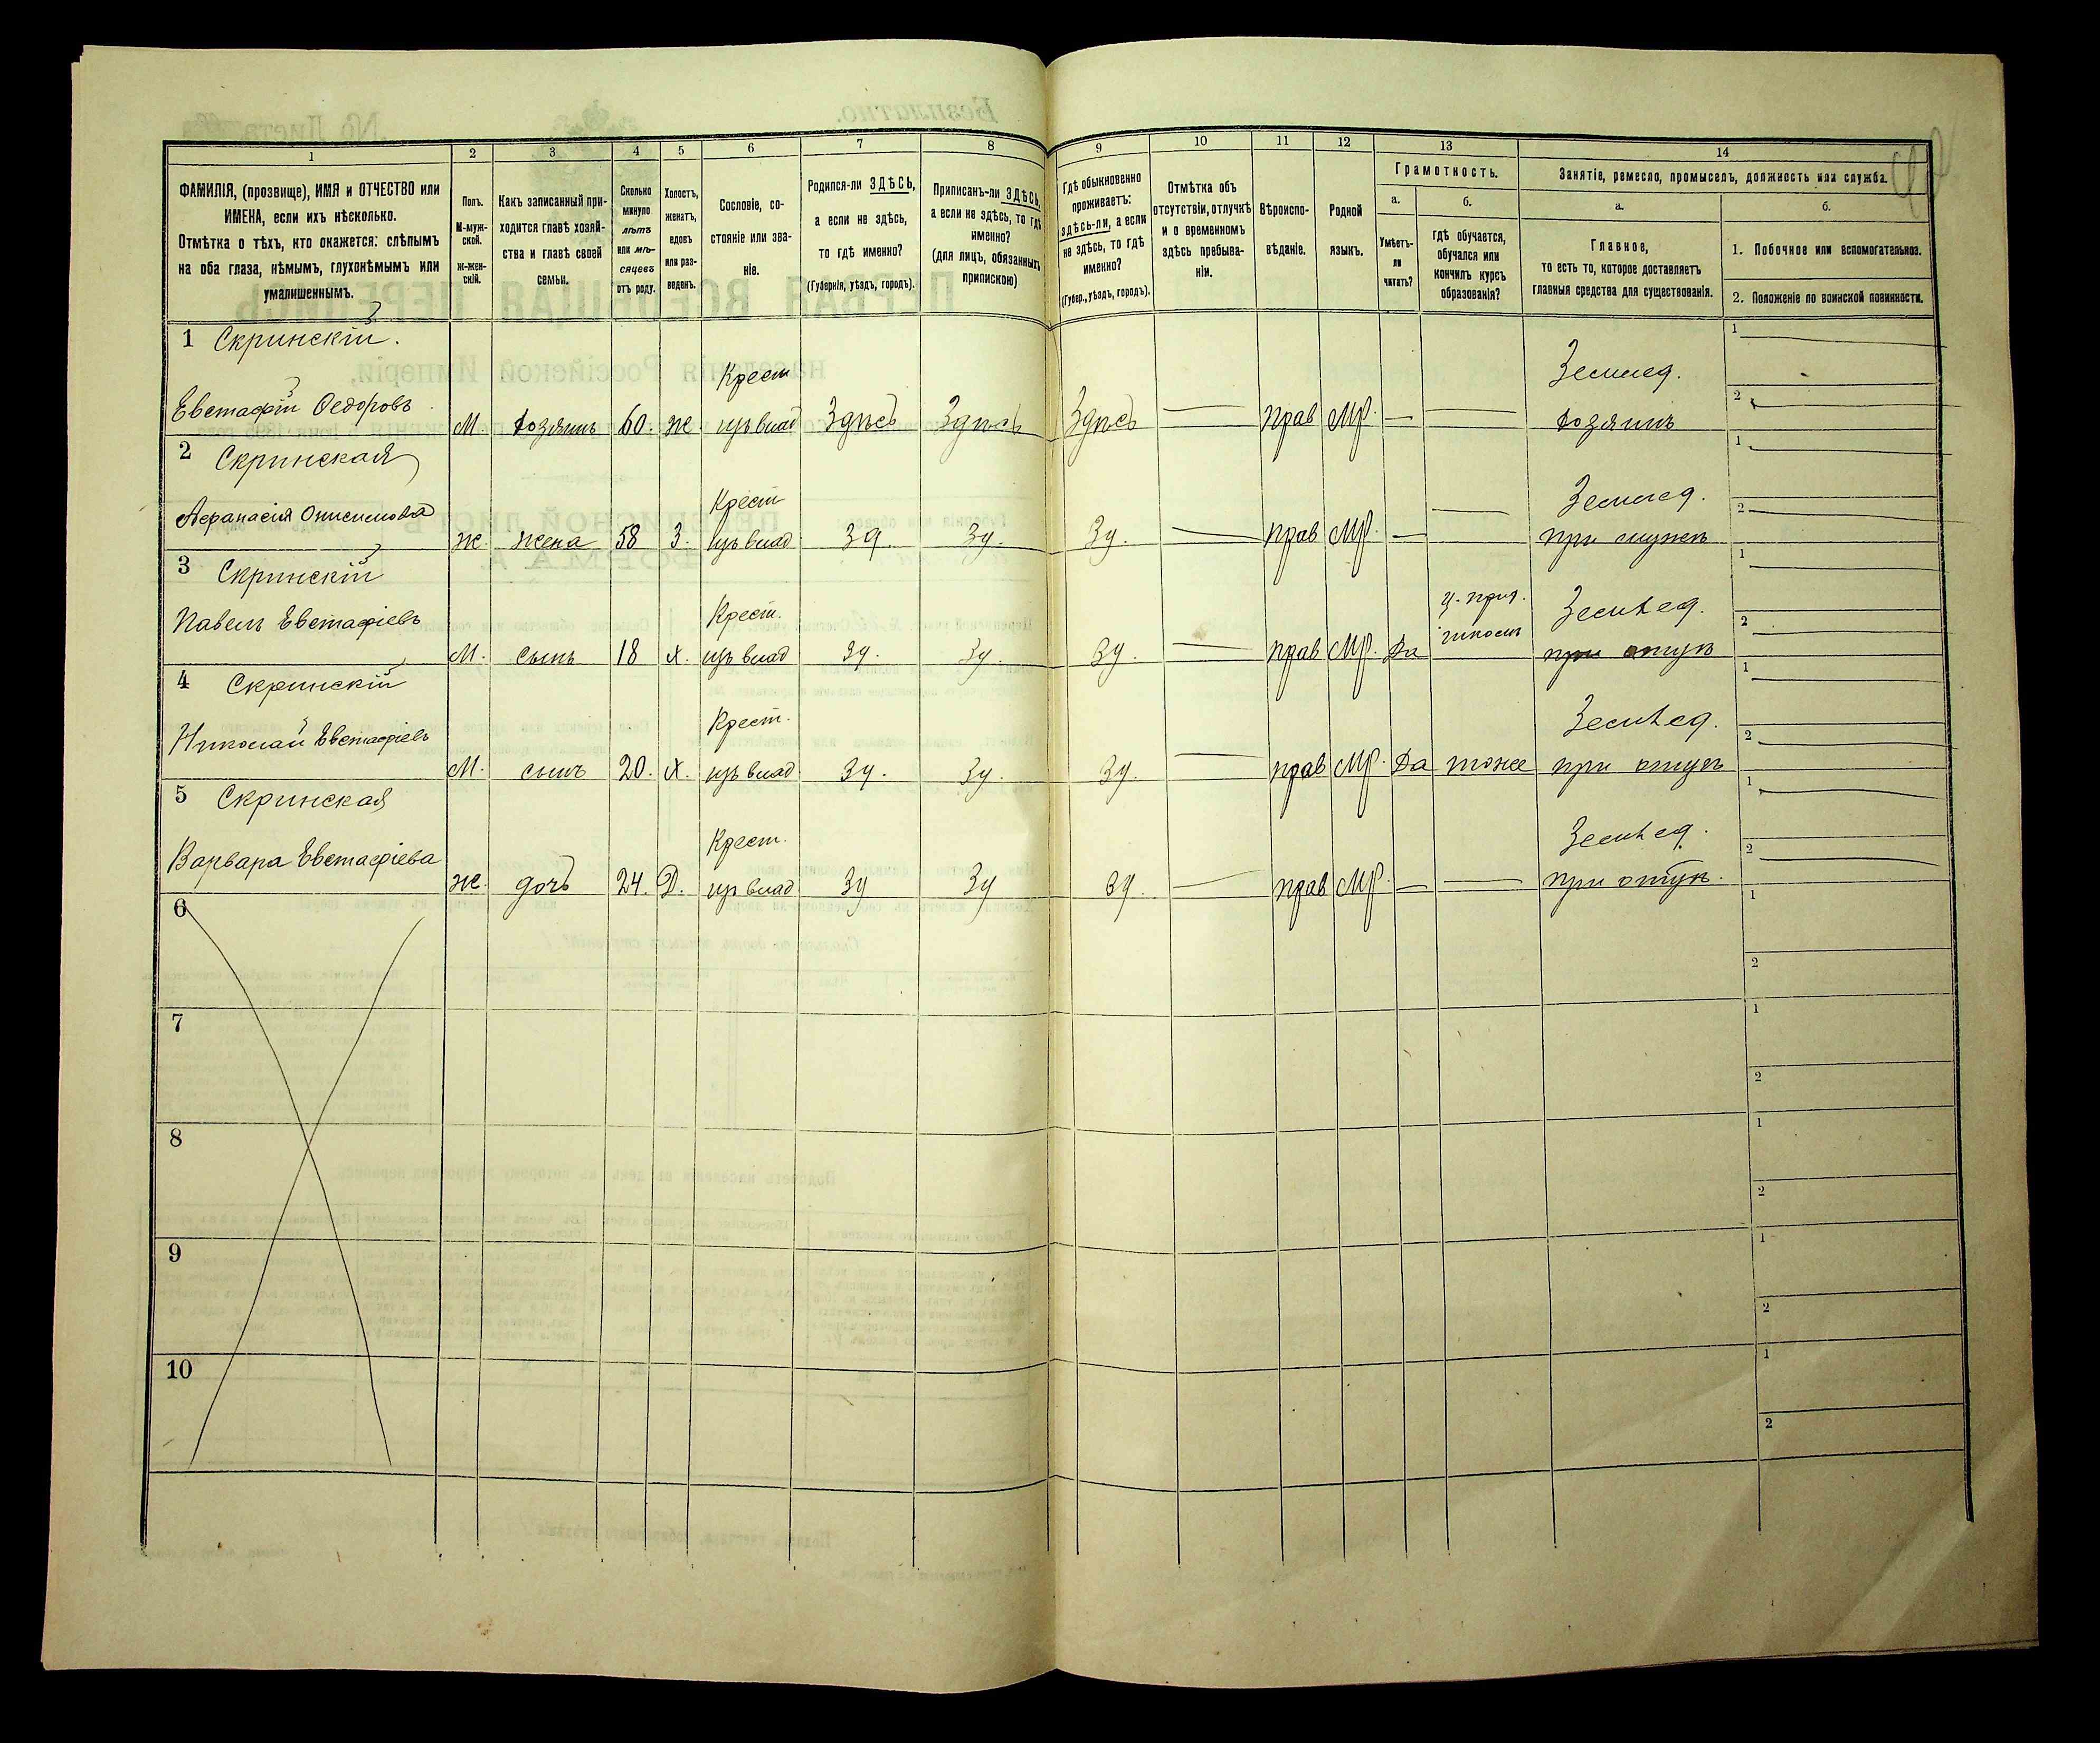 1 2 3 4 5 6 7 8 9 10 11 12 13 14
ФАМИЛІЯ, (прозвище), ИМЯ и ОТЧЕСТВО или
ИМЕНА, если ихъ нѣсколько.
Отмѣтка о тѣхъ, кто окажется: слѣпымъ
на оба глаза, нѣмымъ, глухонѣмымъ или
умалишеннымъ.
Полъ.
М-муж-
ской.
ж-жен-
скій.
Какъ записанный при-
ходится главѣ хозяй-
ства и главѣ своей
семьи.
Сколько
минуло
лѣтъ
или мѣ-
сяцевъ
отъ роду.
Холостъ,
женатъ,
вдовъ
или раз-
веденъ.
Сословіе, со-
стояніе или зва-
ніе.
Родился-ли ЗДѢСЬ,
а если не здѣсь,
то гдѣ именно?
(Губернія, уѣздъ, городъ).
Приписанъ-ли ЗДѢСЬ,
а если не здѣсь, то гдѣ
именно?
(для лицъ, обязанныхъ
припискою)
Гдѣ обыкновенно
проживаетъ:
здѣсь-ли, а если
не здѣсь, то гдѣ
именно?
(Губер., уѣздъ, городъ).
Отмѣтка объ
отсутствіи, отлучкѣ
и о временномъ
здѣсь пребыва-
ніи.
Вѣроиспо-
вѣданіе.
Родной
языкъ.
Грамотность.
а.
Умѣетъ-
ли
читать?
б.
гдѣ обучается,
обучался или
кончилъ курсъ
образованія?
Занятіе, ремесло, промыселъ, должность или служба.
а.
Главное,
то есть то, которое доставляетъ
главныя средства для существованія.
б.
1. Побочное или вспомогательное.
2. Положеніе по воинской повинности.
1 Скринскій. 1
Крест Землед.
Евстафій Федоровъ М. хозяинъ 60. ж изъ влад Здѣсь Здѣсь Здѣсь — прав Мр. — — хозяинъ 2
2 Скринская 1
Крест Землед.
Афанасія Онисимова ж. жена 58 З. изъ влад Зд. Зд. Зд. — прав Мр. — — при мужѣ 2
3 Скринскій 1
Крест. Землед.
Павелъ Евстафіевъ М. сынъ 18 х. изъ влад Зд. Зд. Зд. — прав Мр. Да при отцѣ 2
4 Скринскій 1
Крест. Землед.
Николай Евстафіевъ М. сынъ 20. х. изъ влад Зд. Зд. Зд. — прав Мр. Да тоже при отцѣ 2
5 Скринская 1
Крест. Землед.
Варвара Евстафіева ж. дочь 24. Д. изъ влад Зд Зд Зд. — прав Мр. — — при отцѣ. 2
6 1
2
7 1
2
8 1
2
9 1
2
10 1
2